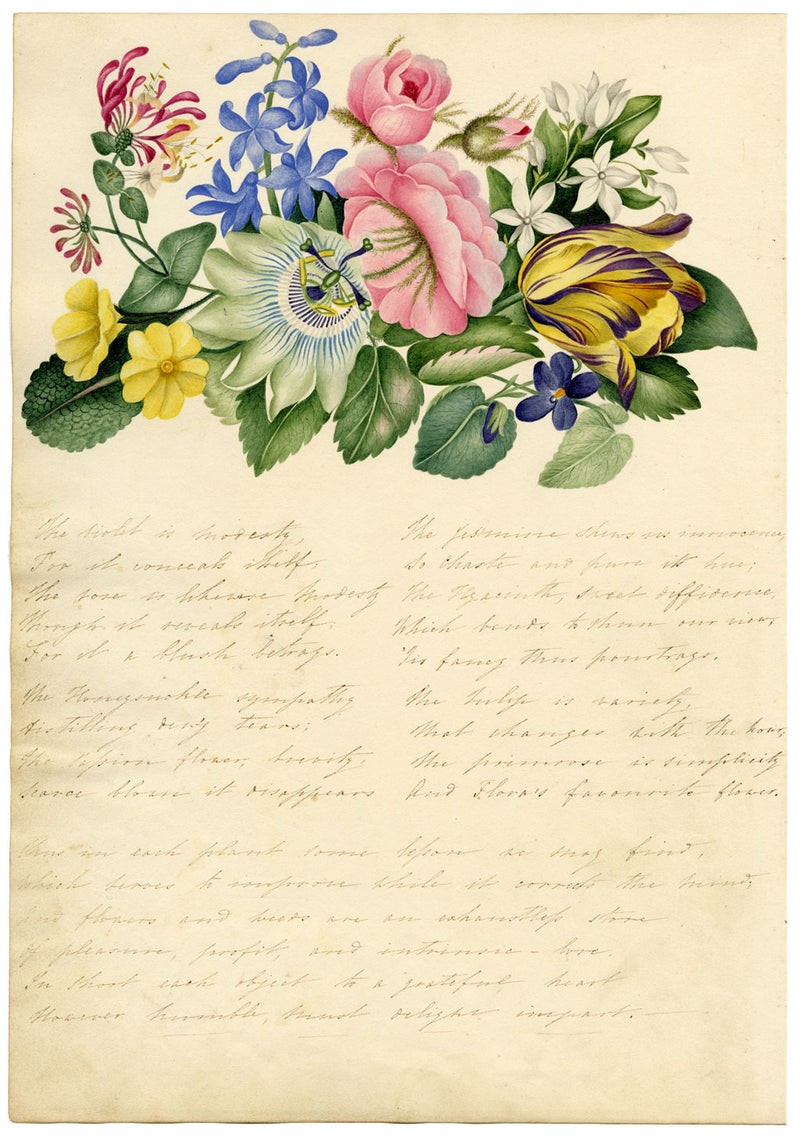 The violet is modesty,
For it conceals itself,
The rose is likewise modesty
Though it reveals itself,
For it a blush betrays.
The Honeysuckle sympathy
distilling dewy tears;
The Passion flower, brevity,
scarce blown it disappears
The Jessmine shews us innocence,
So chaste and pure its hue;
The Hyacinth, sweet diffidence,
Which bends to shun our view,
Tis fancy thus pourtrays.
The tulip is variety,
That changes with the hour,
The primrose is simplicity
And Flora's favourite flower.
Thus in each plant some lesson we may find,
Which serves to improve while it corrects the mind,
And flowers and weeds are an exhaustless store
of pleasure, profit, and intrinsic – lore.
In short each object to a grateful heart
However humble, must delight impart. —